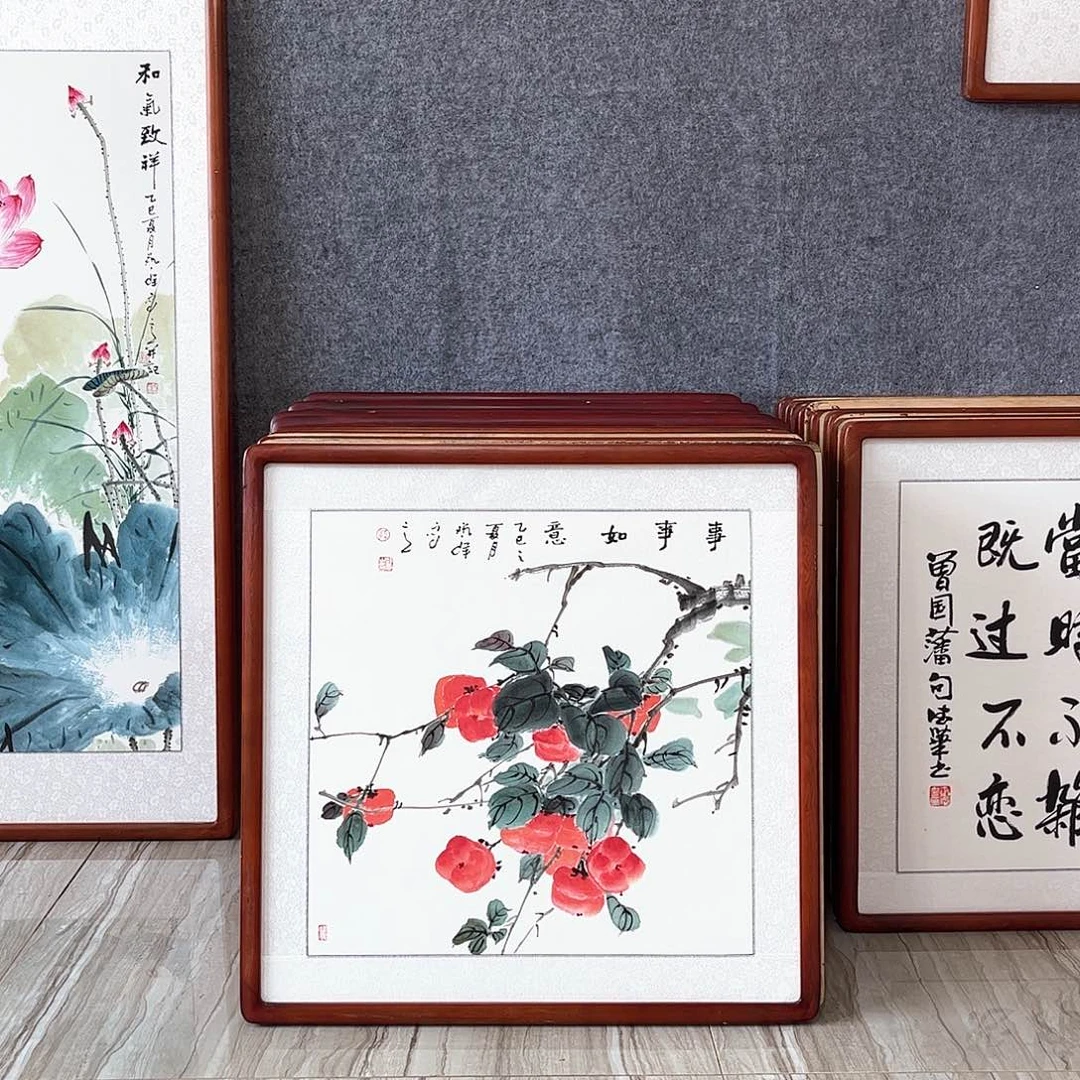 和氣致祥
乙巳夏月
事事如意
乙巳之
夏月
當時不雜
既过不恋
曾国藩句